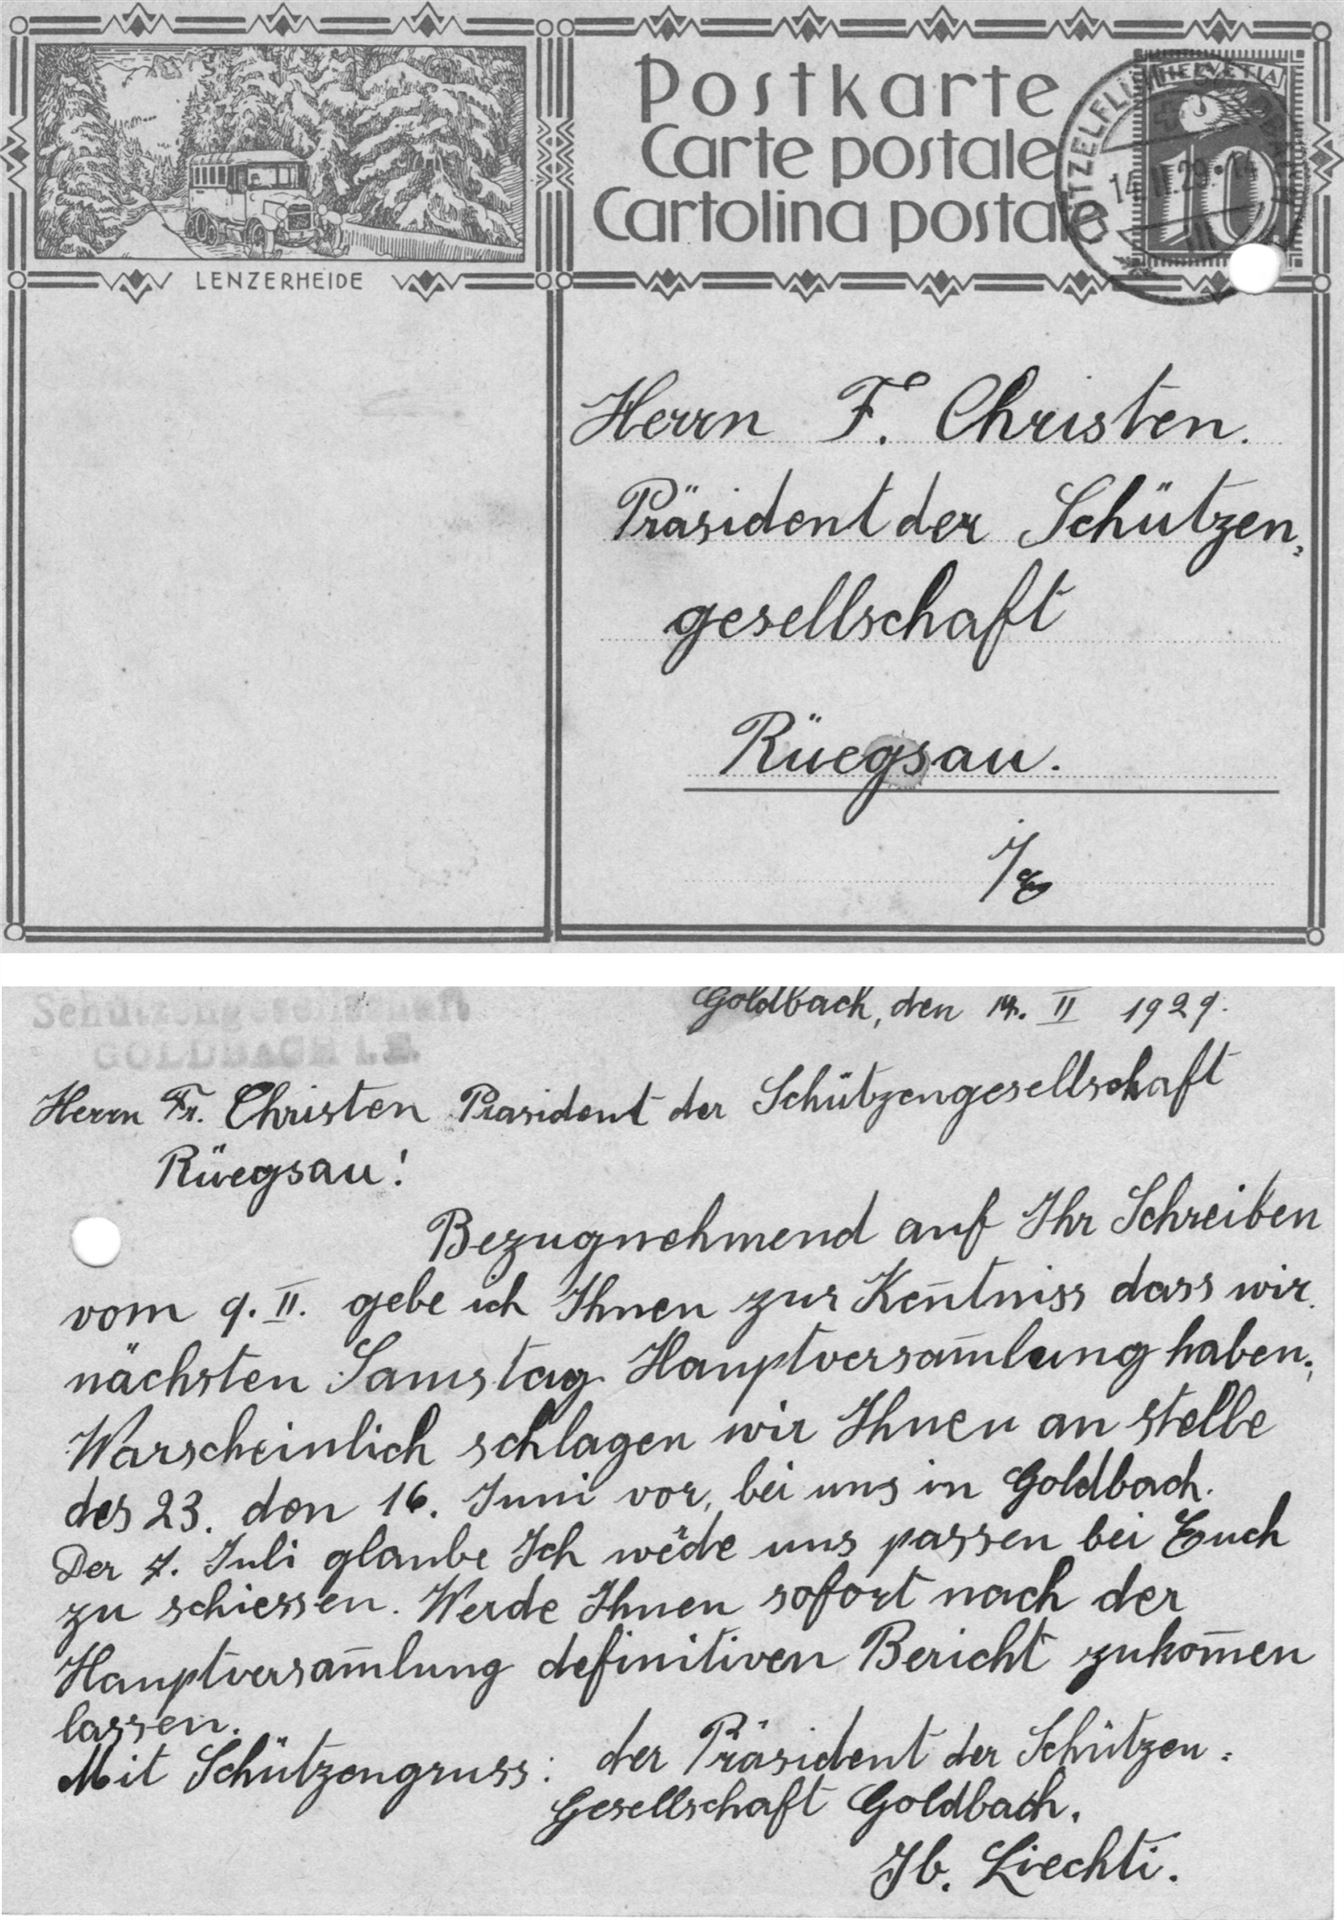 LENZERHEIDE
Postkarte
Carte postale
Cartolina postale
HELVETIA
10
14.II.29.14
Herrn F. Christen.
Präsident der Schützen,
gesellschaft
Rüegsau.
i/E
Schützengesellschaft
GOLDBACH i.E.
Goldbach, den 14. II 1929.
Herrn Fr. Christen Prasident der Schützengesellschaft
Rüegsau!
Bezugnehmend auf Ihr Schreiben
vom 9. II. gebe ich Ihnen zur Ken̄tniss dass wir
nächsten Samstag Hauptversam̄lung haben,
Warscheinlich schlagen wir Ihnen an stelle
des 23. den 16. Juni vor, bei uns in Goldbach.
Der 7. Juli glaube Ich würde uns passen bei Euch
zu schiessen. Werde Ihnen sofort nach der
Hauptversam̄lung definitiven Bericht zukom̄en
lassen.
Mit Schützengruss: der Präsident der Schützen=
Gesellschaft Goldbach.
Jb. Liechti.